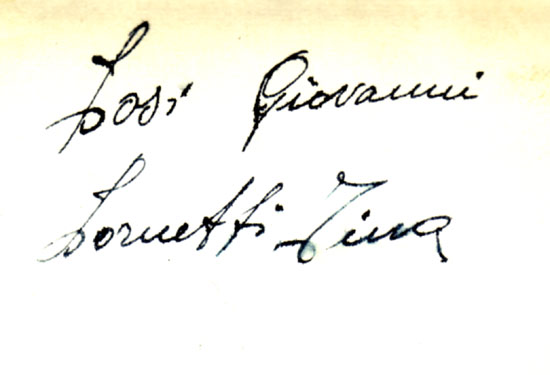 Losi Giovanni
Lornetti Tina